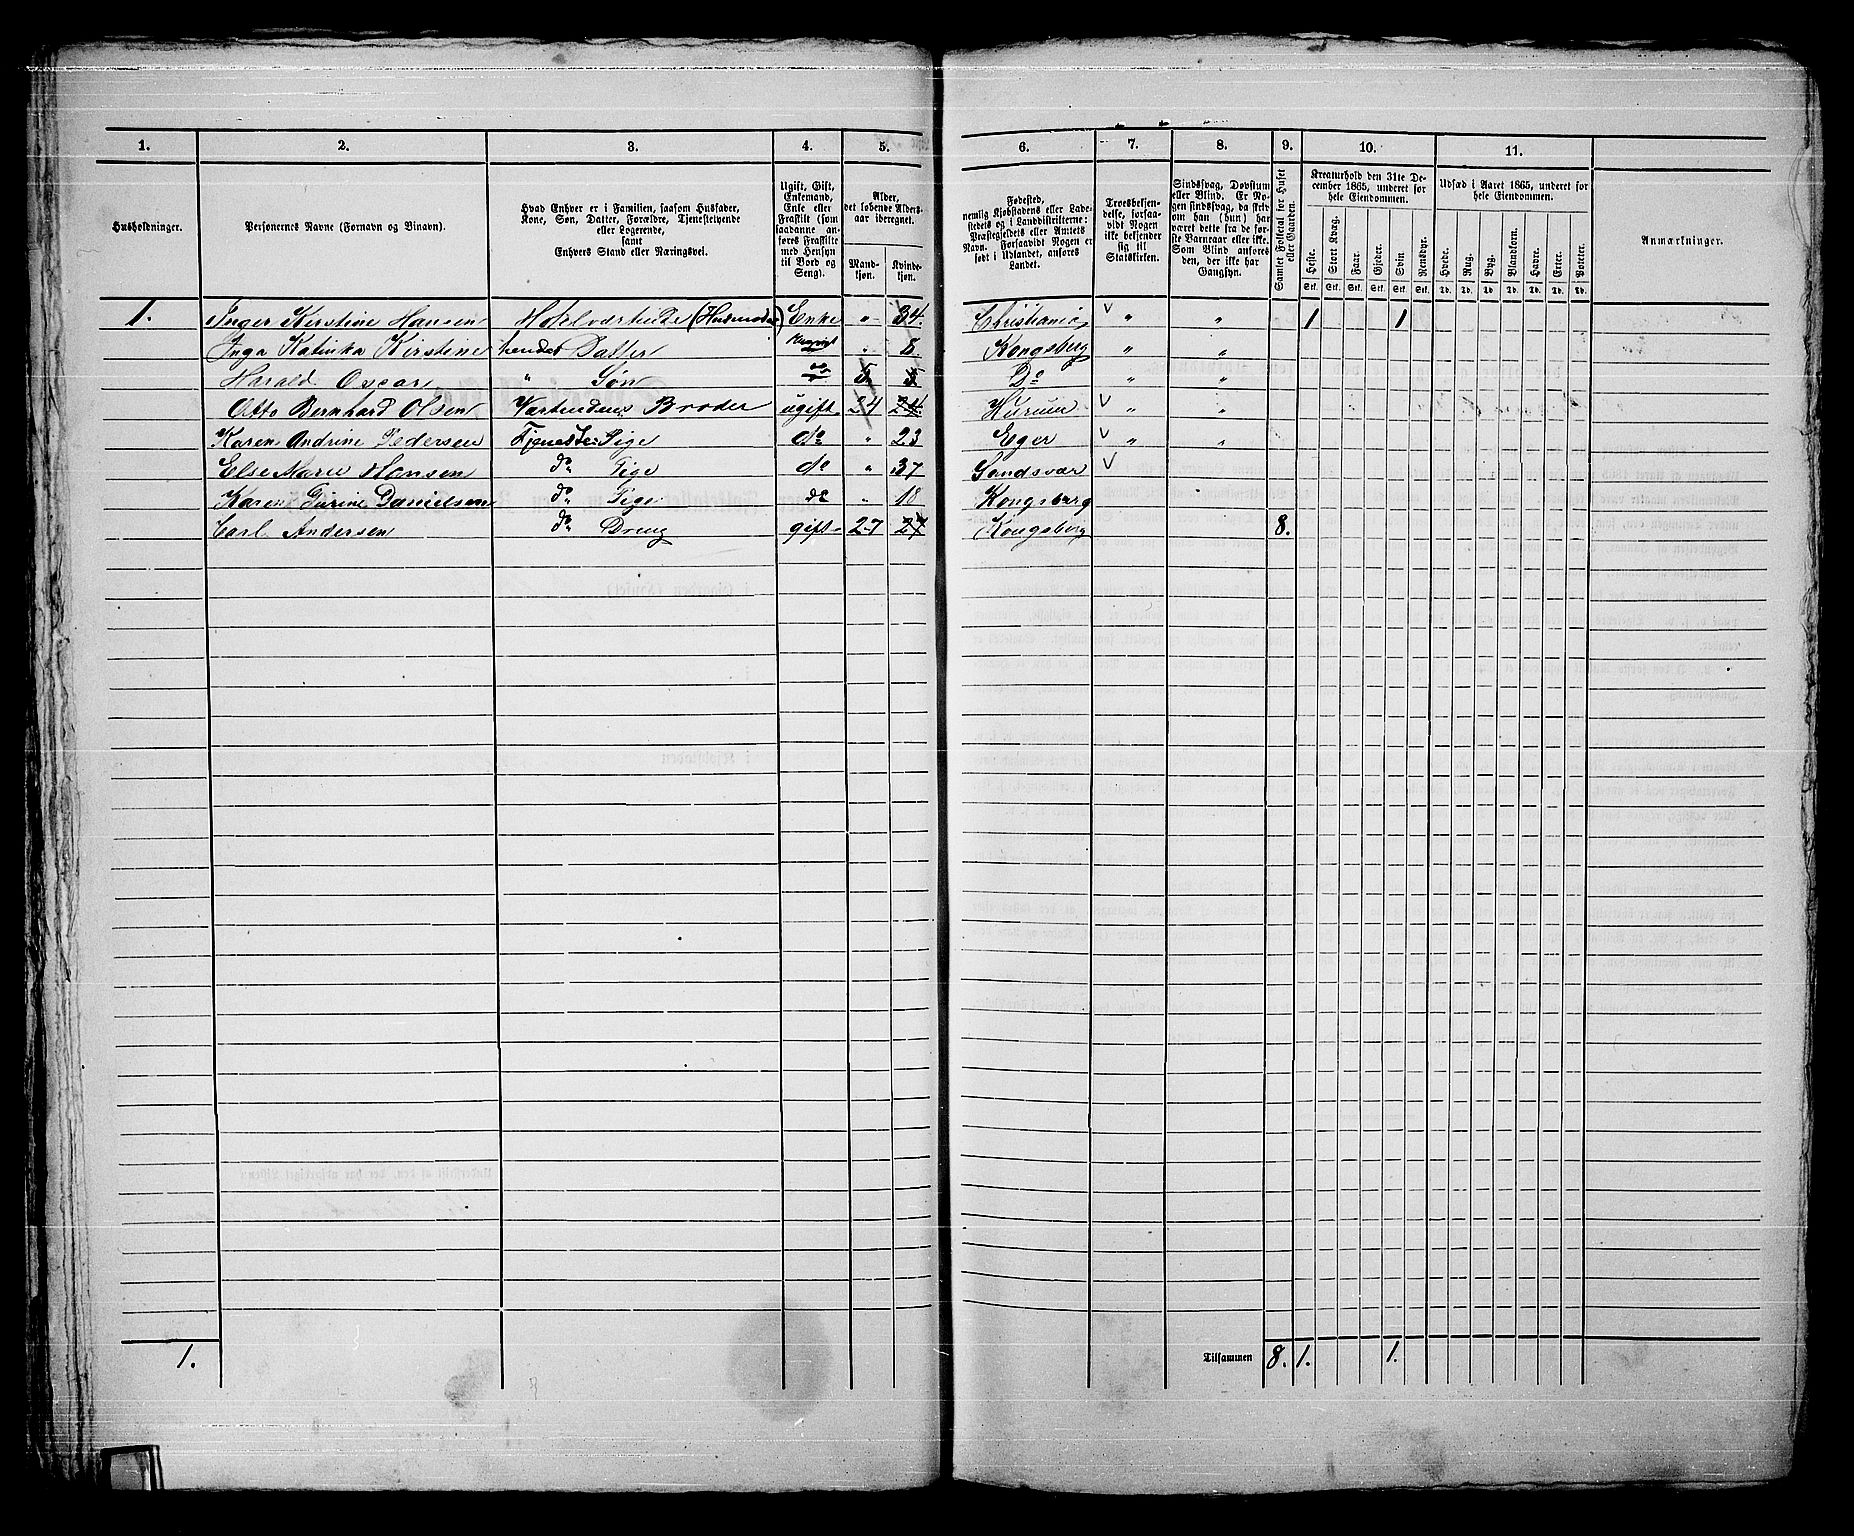 1. 2. 3. 4. 5. 6. 7. 8. 9. 10. 11.
Husholdninger.
Personernes Navne (Fornavn og Binavn).
Hvad Enhver er i Familien, saasom Husfader,
Kone, Søn, Datter, Forældre, Tjenestetyende
eller Logerende,
samt
Enhvers Stand eller Næringsvei.
Ugift, Gift,
Enkemand,
Enke eller
Fraskilt (som
saadanne an-
føres Fraskilte
med Hensyn
til Bord og
Seng).
Alder,
det løbende Alders-
aar iberegnet.
Mand-
kjøn.
Kvinde-
kjøn.
Fødested,
nemlig Kjøbstadens eller Lade-
stedets og i Landdistrikterne:
Præstegjeldets eller Amtets
Navn. Forsaavidt Nogen er
født i Udlandet, anføres
Landet.
Troesbekjen-
delse, forsaa-
vidt Nogen
ikke bekjender
sig til
Statskirken.
Sindssvag, Døvstum
eller Blind. Er No-
gen sindssvag, da skriv
om han (hun) har
været dette fra de før-
ste Barneaar eller ikke.
Som Blind anføres
den, der ikke har
Gangsyn.
Samlet Folketal for Huset
eller Gaarden.
Kreaturhold den 31te De-
cember 1865, underet for
hele Eiendommen.
Heste. Stort Kvæg. Faar. Gjeder. Svin. Rensdyr.
Stk. Stk. Stk. Stk. Stk. Stk.
Udsæd i Aaret 1865, underet for
hele Eiendommen.
Hvede. Rug. Byg. Blandkorn. Havre. Erter. Poteter.
Td. Td. Td. Td. Td. Td. Td.
Anmærkninger.
1. Inger Kirstine Hansen (Husmoder) Enke " 34. Christiania v " " 1 1
Inga Katinka Kirstine hendes Datter " 8 Kongsberg " "
Harald Oscar " Søn do 5 5 Do " "
Otto Bernhard Olsen Værtindens Broder ugift 24 24 Hurum v " "
Karen Andrine Pedersen Tjeneste Pige do " 23 Eger v " "
Else Marie Hansen do Pige do " 37 Sandsvær v
Karen Gurine Danielsen do Pige do " 18 Kongsberg
Carl Andersen do Dreng gift 27 27 Kongsberg 8.
1. Tilsammen 8. 1. 1.